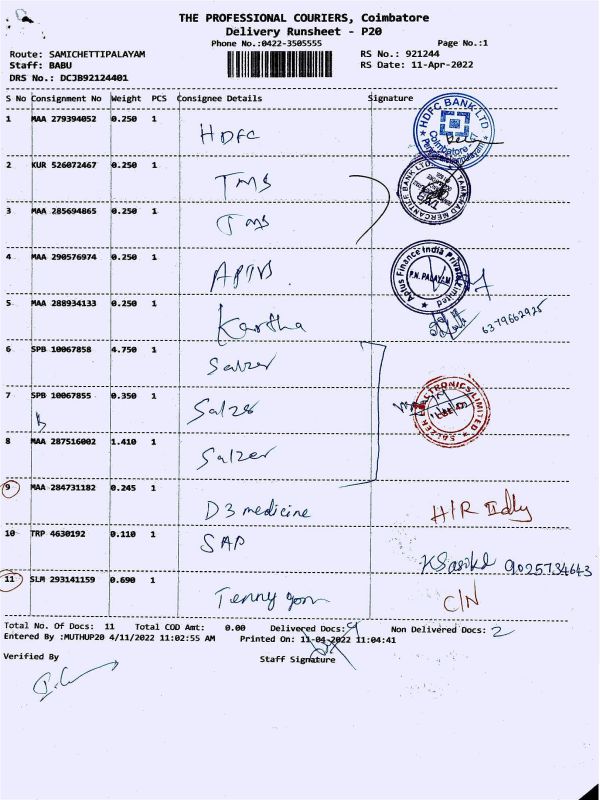 THE PROFESSIONAL COURIERS, Coimbatore
Delivery Runsheet - P20
Phone No.:0422-3505555 Page No.:1
Route: SAMICHETTIPALAYAM RS No.: 921244
Staff: BABU RS Date: 11-Apr-2022
DRS No.: DCJB92124401
S No Consignment No Weight PCS Consignee Details Signature
1 MAA 279394052 0.250 1 HDFC
HDFC BANK LTD Coimbatore
2 KUR 526072467 0.250 1 TMS
TAMILNAD MERCANTILE BANK LTD
3 MAA 285694865 0.250 1 TMS
4 MAA 290576974 0.250 1 APTUS
Aptus Finance India Private Limited
P.N. PALAYAM
5 MAA 288934133 0.250 1 Kartha
6379662925
6 SPB 10067858 4.750 1 Salzer
7 SPB 10067855 0.350 1 Salze
SALZER ELECTRONICS LIMITED
8 MAA 287516002 1.410 1 Salzer
9 MAA 284731182 0.245 1 D3 medicine H/R Idly
10 TRP 4630192 0.110 1 SAP 9025734643
11 SLM 293141159 0.690 1 C/N
Total No. Of Docs: 11 Total COD Amt: 0.00 Delivered Docs: 9 Non Delivered Docs: 2
Entered By :MUTHUP20 4/11/2022 11:02:55 AM Printed On: 11-04-2022 11:04:41
Verified By Staff Signature